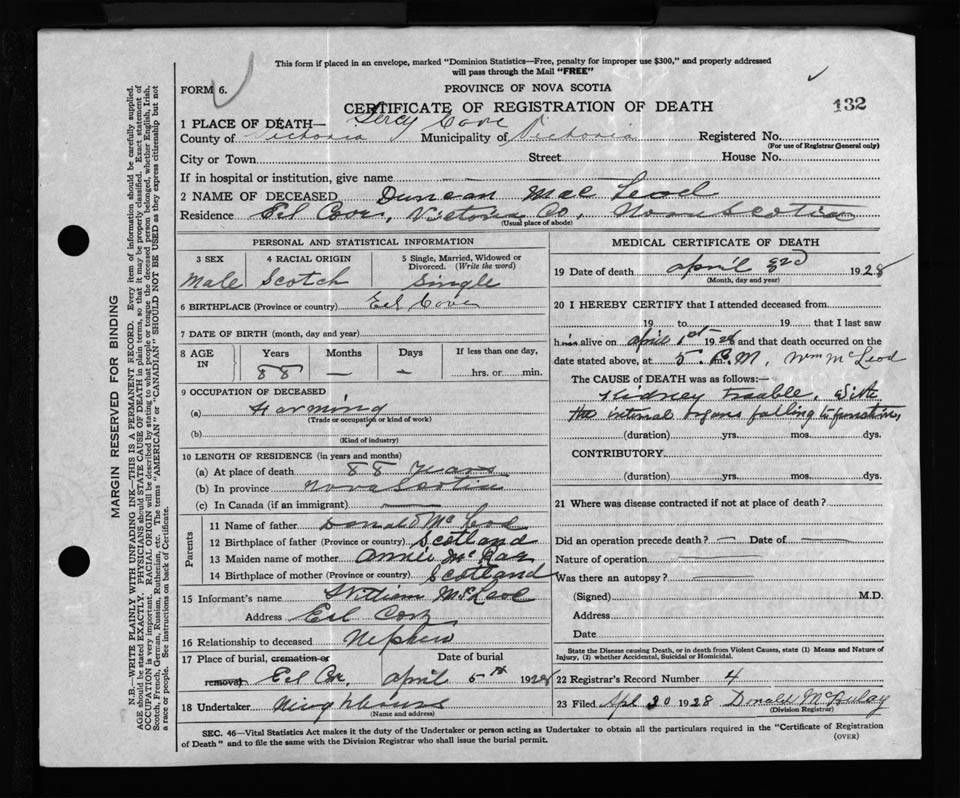 This form if placed in an envelope, marked "Dominion Statistics—Free, penalty for improper use $300," and properly addressed
will pass through the Mail "FREE"
FORM 6.
PROVINCE OF NOVA SCOTIA
CERTIFICATE OF REGISTRATION OF DEATH
132
1 PLACE OF DEATH— Cove
County of Victoria Municipality of Victoria Registered No.
(For use of Registrar General only)
City or Town Street House No.
If in hospital or institution, give name —
2 NAME OF DECEASED Duncan Mac Leod
Residence Eel Cove, Victoria Co, Nova Scotia
(Usual place of abode)
PERSONAL AND STATISTICAL INFORMATION
3 SEX 4 RACIAL ORIGIN 5 Single, Married, Widowed or
Divorced. (Write the word)
Male Scotch Single
6 BIRTHPLACE (Province or country) Eel Cove
7 DATE OF BIRTH (month, day and year)
8 AGE IN Years Months Days If less than one day,
88 — — hrs. or min.
9 OCCUPATION OF DECEASED
(a) Farming
(Trade or occupation or kind of work)
(b)
(Kind of industry)
10 LENGTH OF RESIDENCE (in years and months)
(a) At place of death 88 years
(b) In province Nova Scotia
(c) In Canada (if an immigrant) —
Parents
11 Name of father Donald McLeod
12 Birthplace of father (Province or country) Scotland
13 Maiden name of mother Annie
14 Birthplace of mother (Province or country) Scotland
15 Informant's name William McLeod
Address Eel Cove
16 Relationship to deceased Nephew
17 Place of burial, cremation or Date of burial
removal Eel Cove, April 5th 1928
18 Undertaker Neighbours
(Name and address)
MEDICAL CERTIFICATE OF DEATH
19 Date of death April 1928
(Month, day and year)
20 I HEREBY CERTIFY that I attended deceased from
19 to 19 that I last saw
h alive on April 1st 1928 and that death occurred on the
date stated above, at 5. P.M, Wm McLeod
The CAUSE of DEATH was as follows:—
Kidney trouble, With
the internal organs failing to function,
(duration) yrs. mos. dys.
CONTRIBUTORY.
(duration) yrs. mos. dys.
21 Where was disease contracted if not at place of death?
Did an operation precede death? — Date of —
Nature of operation —
Was there an autopsy? —
(Signed) M.D.
Address
Date
State the Disease causing Death, or in death from Violent Causes, state (1) Means and Nature of
Injury, (2) whether Accidental, Suicidal or Homicidal.
22 Registrar's Record Number 4
23 Filed Apl 20 1928 Donald McAulay
(Division Registrar)
SEC. 46—Vital Statistics Act makes it the duty of the Undertaker or person acting as Undertaker to obtain all the particulars required in the "Certificate of Registration
of Death" and to file the same with the Division Registrar who shall issue the burial permit.
(OVER)
MARGIN RESERVED FOR BINDING
N.B.—WRITE PLAINLY, WITH UNFADING INK—THIS IS A PERMANENT RECORD. Every item of information should be carefully supplied.
AGE should be stated EXACTLY. PHYSICIANS should STATE CAUSE OF DEATH in plain terms, so that it may be properly classified. Exact statement of
OCCUPATION is very important. RACIAL ORIGIN will be described by stating to what people or tongue the deceased person belonged, whether English, Irish,
Scotch, French, German, Russian, Ruthenian, etc. The terms "AMERICAN" or "CANADIAN" SHOULD NOT BE USED as they express citizenship but not
a race or people. See instructions on back of Certificate.